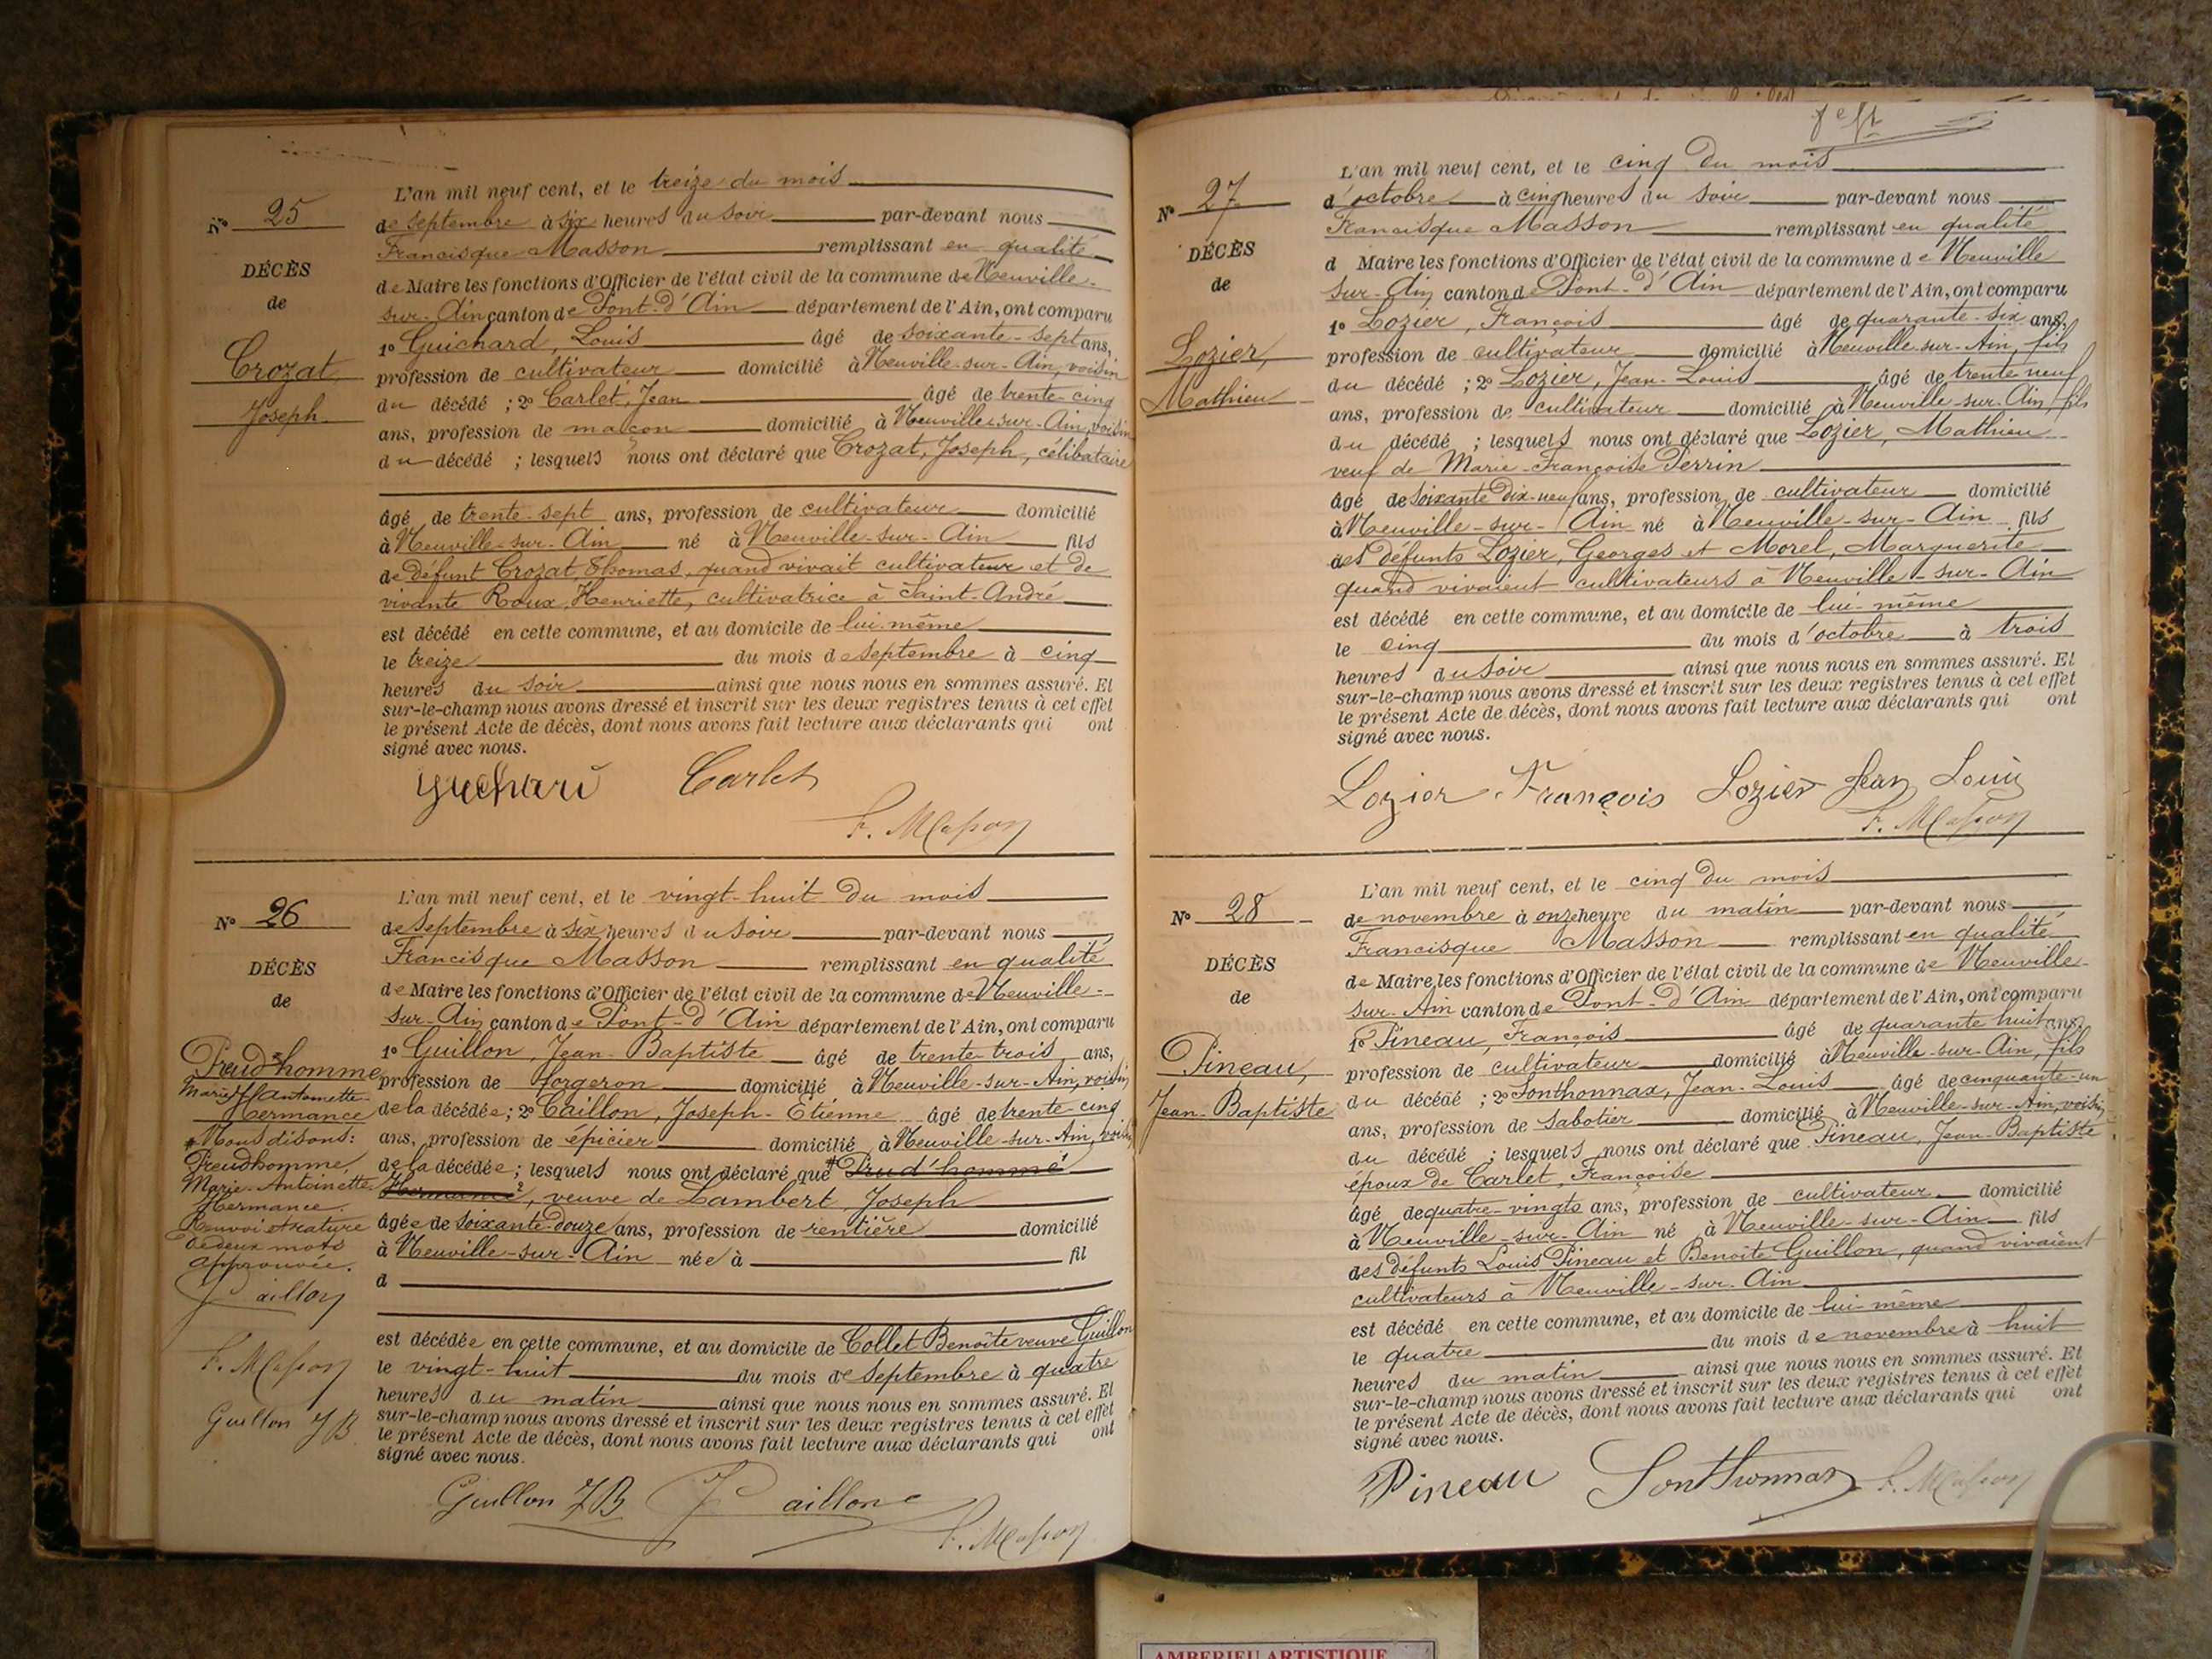 N° 25
DÉCÈS
de
Crozat,
Joseph
L'an mil neuf cent, et le treize du mois
de septembre à six heures du soir par-devant nous
Francisque Masson remplissant en qualité
de Maire les fonctions d'Officier de l'état civil de la commune de Neuville-
sur-Ain canton de Pont-d'Ain département de l'Ain, ont comparu
1° Guichard, Louis âgé de soixante-sept ans,
profession de cultivateur domicilié à Neuville-sur-Ain, voisin
du décédé ; 2° Carlet, Jean âgé de trente-cinq
ans, profession de maçon domicilié à Neuville-sur-Ain, voisin
du décédé ; lesquels nous ont déclaré que Crozat, Joseph, célibataire
âgé de trente-sept ans, profession de cultivateur domicilié
à Neuville-sur-Ain né à Neuville-sur-Ain fils
de défunt Crozat, Thomas, quand vivait cultivateur et de
vivante Roux, Henriette, cultivatrice à Saint-André
est décédé en cette commune, et au domicile de lui-même
le treize du mois de septembre à cinq
heures du soir ainsi que nous nous en sommes assuré. Et
sur-le-champ nous avons dressé et inscrit sur les deux registres tenus à cet effet
le présent Acte de décès, dont nous avons fait lecture aux déclarants qui ont
signé avec nous.
Guichard Carlet
F. Masson
N° 26
DÉCÈS
de
Preud'homme
Marie-Antoinette-
Hermance
Nous disons:
Preudhomme,
Marie-Antoinette-
Hermance.
Renvoi et rature
de deux mots
approuvée.
J Caillon
F. Masson
Guillon JB
L'an mil neuf cent, et le vingt-huit du mois
de septembre à six heures du soir par-devant nous
Francisque Masson remplissant en qualité
de Maire les fonctions d'Officier de l'état civil de la commune de Neuville-
sur-Ain canton de Pont-d'Ain département de l'Ain, ont comparu
1° Guillon, Jean-Baptiste âgé de trente-trois ans,
profession de forgeron domicilié à Neuville-sur-Ain, voisin
de la décédée ; 2° Caillon, Joseph-Etienne âgé de trente-cinq
ans, profession de épicier domicilié à Neuville-sur-Ain, voisin
de la décédée ; lesquels nous ont déclaré que Prud'homme
Hermance, veuve de Lambert, Joseph
âgée de soixante-douze ans, profession de rentière domicilié
à Neuville-sur-Ain née à fil
d
est décédée en cette commune, et au domicile de Collet Benoîte veuve Guillon
le vingt-huit du mois de septembre à quatre
heures du matin ainsi que nous nous en sommes assuré. Et
sur-le-champ nous avons dressé et inscrit sur les deux registres tenus à cet effet
le présent Acte de décès, dont nous avons fait lecture aux déclarants qui ont
signé avec nous.
Guillon JB J Caillon
F. Masson
N° 27
DÉCÈS
de
Lozier,
Mathieu
L'an mil neuf cent, et le cinq du mois
d'octobre à cinq heures du soir par-devant nous
Francisque Masson remplissant en qualité
d Maire les fonctions d'Officier de l'état civil de la commune de Neuville
sur-Ain canton de Pont-d'Ain département de l'Ain, ont comparu
1° Lozier, François âgé de quarante-six ans,
profession de cultivateur domicilié à Neuville-sur-Ain, fils
du décédé ; 2° Lozier, Jean-Louis âgé de trente neuf
ans, profession de cultivateur domicilié à Neuville-sur-Ain, fils
du décédé ; lesquels nous ont déclaré que Lozier, Mathieu
veuf de Marie-Françoise Perrin
âgé de soixante dix-neuf ans, profession de cultivateur domicilié
à Neuville-sur-Ain né à Neuville-sur-Ain fils
des défunts Lozier, Georges et Morel, Marguerite
quand vivaient cultivateurs à Neuville-sur-Ain
est décédé en cette commune, et au domicile de lui-même
le cinq du mois d'octobre à trois
heures du soir ainsi que nous nous en sommes assuré. Et
sur-le-champ nous avons dressé et inscrit sur les deux registres tenus à cet effet
le présent Acte de décès, dont nous avons fait lecture aux déclarants qui ont
signé avec nous.
Lozier François Lozier Jean Louis
F. Masson
N° 28
DÉCÈS
de
Pineau,
Jean-Baptiste
L'an mil neuf cent, et le cinq du mois
de novembre à onze heure du matin par-devant nous
Francisque Masson remplissant en qualité
de Maire les fonctions d'Officier de l'état civil de la commune de Neuville-
sur-Ain canton de Pont-d'Ain département de l'Ain, ont comparu
1° Pineau, François âgé de quarante huit ans,
profession de cultivateur domicilié à Neuville-sur-Ain, fils
du décédé ; 2° Sonthonnax, Jean-Louis âgé de cinquante-un
ans, profession de sabotier domicilié à Neuville-sur-Ain, voisin
du décédé ; lesquels nous ont déclaré que Pineau, Jean-Baptiste
époux de Carlet, Françoise
âgé de quatre-vingts ans, profession de cultivateur domicilié
à Neuville-sur-Ain né à Neuville-sur-Ain fils
des défunts Louis Pineau et Benoîte Guillon, quand vivaient
cultivateurs à Neuville-sur-Ain
est décédé en cette commune, et au domicile de lui-même
le quatre du mois de novembre à huit
heures du matin ainsi que nous nous en sommes assuré. Et
sur-le-champ nous avons dressé et inscrit sur les deux registres tenus à cet effet
le présent Acte de décès, dont nous avons fait lecture aux déclarants qui ont
signé avec nous.
Pineau Sonthonnax F. Masson
AMBERIEU ARTISTIQUE